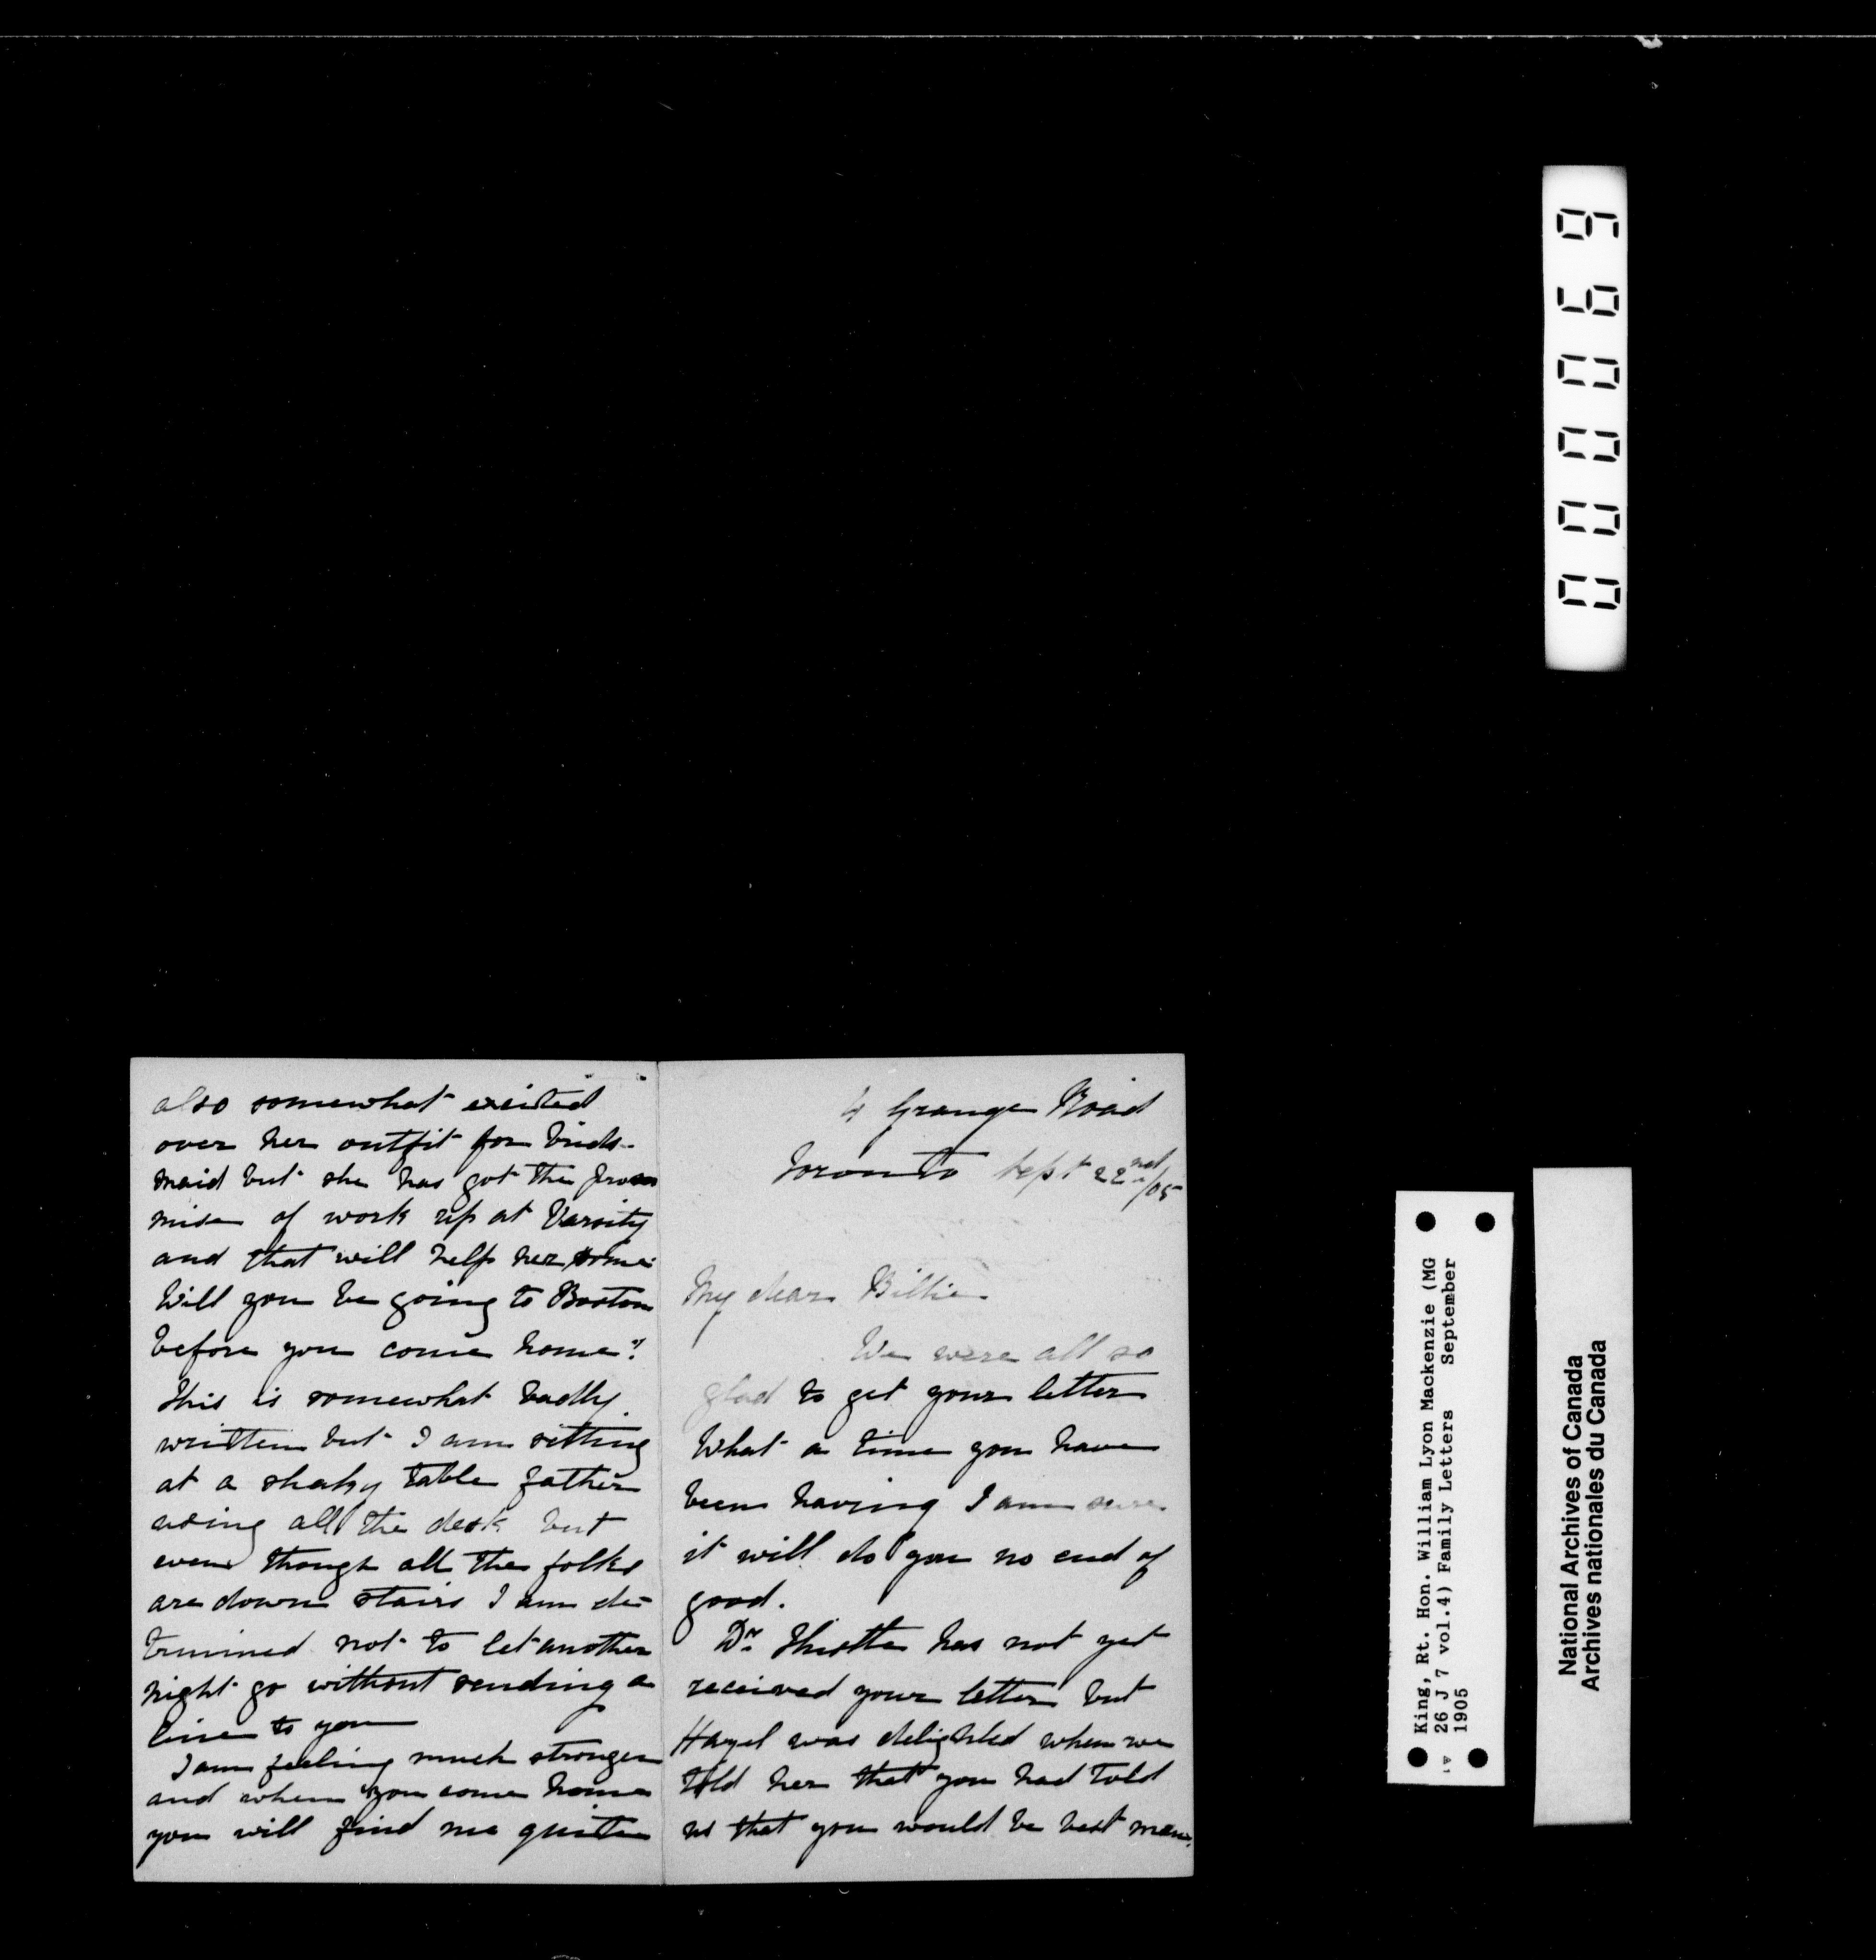 also somewhat excited
over her outfit for brids-
maid but she has got the pro
mise of work up at Varsity
and that will help her some
Will you be going to Boston
before you come home?
This is somewhat badly
written but I am sitting
at a shaky table father
using all the desk but
even though all the folks
are down stairs I am de-
termined not to let another
night go without sending a
line to you
I am feeling much stronger
and when you come home
you will find me quite
4 Grange Road
Toronto Sept 22nd/05
My dear Billie
We were all so
glad to get your letter
What a time you have
been having I am sure
it will do you no end of
good.
Dr Thistle has not yet
received your letter but
Hazel was delighted when we
told her that you had told
us that you would be best man.
King, Rt. Hon. William Lyon Mackenzie (MG
26 J 7 vol.4) Family Letters September
1905
National Archives of Canada
Archives nationales du Canada
000069